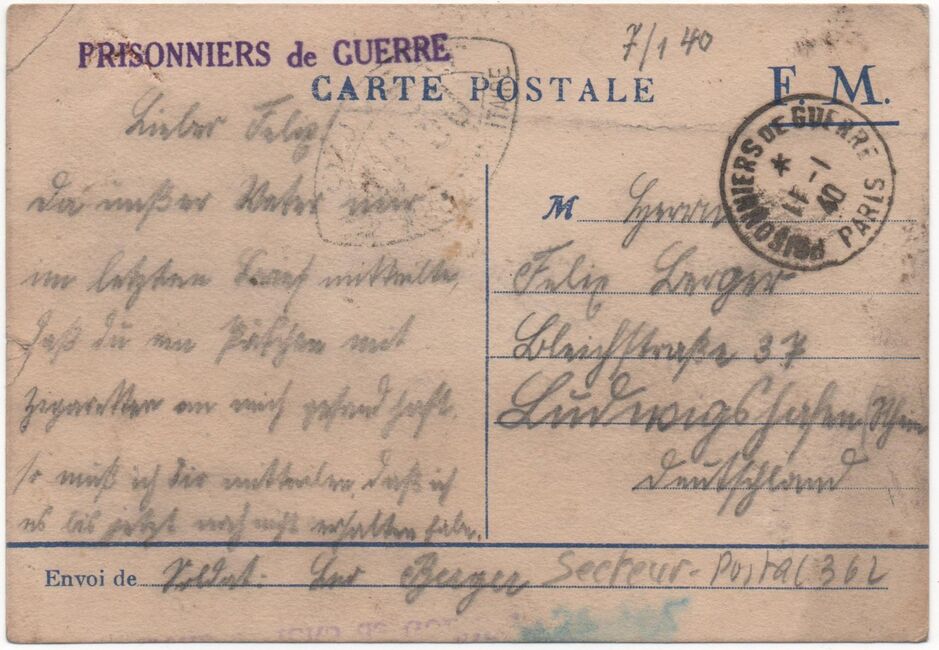 PRISONNIERS de GUERRE
7/1 40
CARTE POSTALE
F. M.
PRISONNIERS DE GUERRE PARIS
11 - 1
40
Lieber Felix!
da unser Vater mir
im letzten Brief mitteilte,
daß du ein Päckchen mit
Zigaretten an mich gesand hast.
so muß ich dir mitteilen daß ich
es bis jetzt noch nicht erhalten habe.
M Herrn
Felix Berger
Bleichstraße 37
Ludwigshafen/Rhein
Deutschland
Envoi de Soldat Berger Secteur-Postal 362